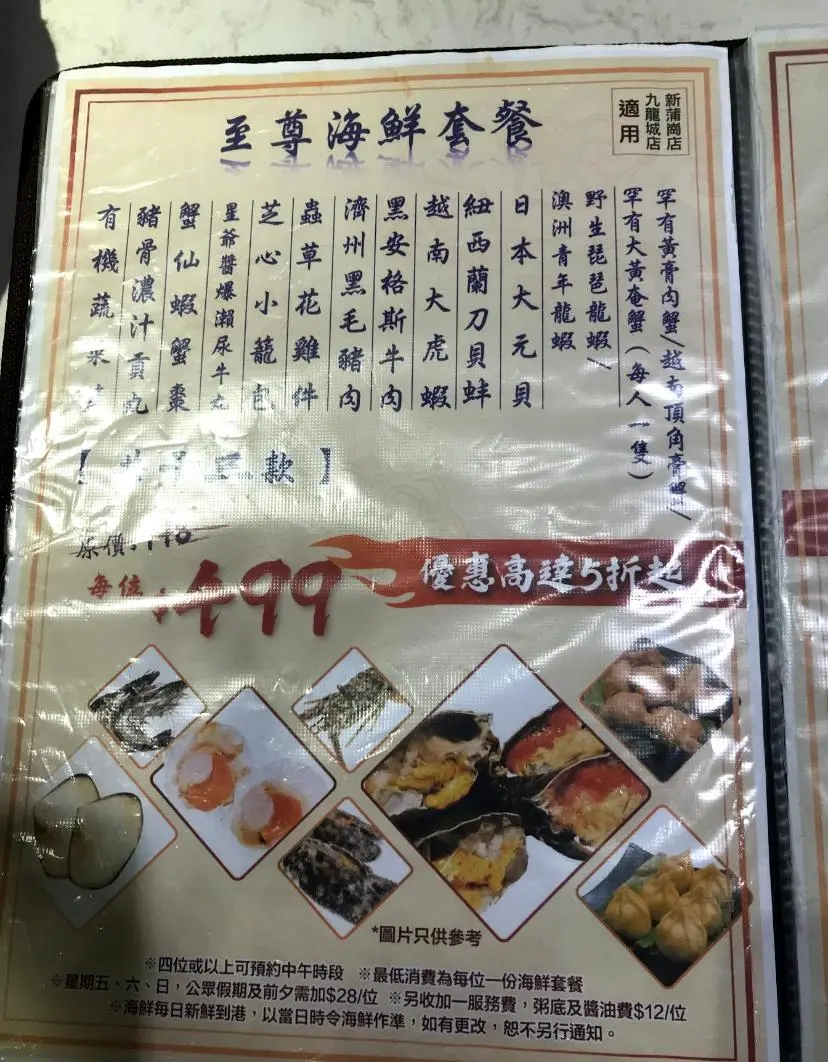 至尊海鮮套餐
新蒲崗店
九龍城店
適用
罕有黃膏肉蟹/越南頂角膏蟹/
罕有大黃奄蟹(每人一隻)
野生琵琶龍蝦/
澳洲青年龍蝦
日本大元貝
紐西蘭刀貝蚌
越南大虎蝦
黑安格斯牛肉
濟州黑毛豬肉
蟲草花雞件
芝心小籠包
星爺醬爆瀨尿牛丸
蟹仙蝦蟹棗
豬骨濃汁貢丸
有機蔬菜
【 款】
原價:
每位 $499
優惠高達5折起
*圖片只供參考
※四位或以上可預約中午時段 ※最低消費為每位一份海鮮套餐
※星期五、六、日,公眾假期及前夕需加$28/位 ※另收加一服務費,粥底及醬油費$12/位
※海鮮每日新鮮到港,以當日時令海鮮作準,如有更改,恕不另行通知。